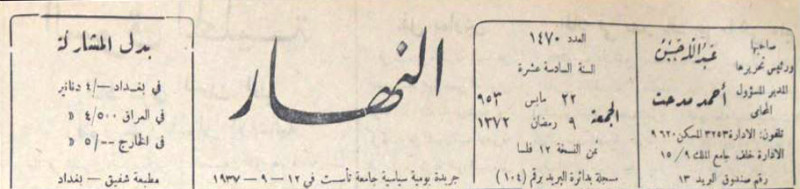 صاحبها
ورئيس تحريرها
عبد الله حسن
المدير المسؤول
المحامي
أحمد مدحت
تلفون: الادارة ٣٢٥٣ المسكن ٩٦٢٠
الادارة خلف جامع الملك ٩ / ١٥
رقم صندوق البريد ١٣
العدد ١٤٧٠
السنة السادسة عشرة
الجمعة
٢٢ مايس ٩٥٣
٩ رمضان ١٣٧٢
ثمن النسخة ١٢ فلسا
مسجلة بدائرة البريد برقم (١٠٤)
النهار
جريدة يومية سياسية جامعة تأسست في ١٢ – ٩ – ١٩٣٧
بدل المشاركة
في بغداد —/٤ دنانير
في العراق ٤/٥٠٠ »
في الخارج —/٥ »
مطبعة شفيق – بغداد